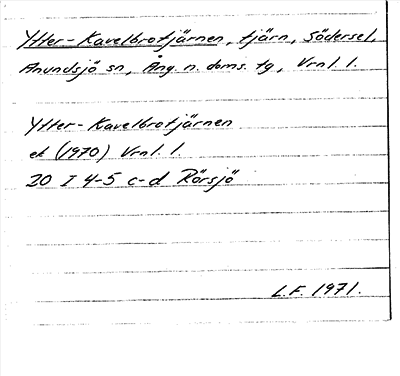 Ytter-Kavelbrotjärnen, tjärn, Södersel,
Anundsjö sn, Ång. n. doms. tg, Vrnl. l.
Ytter-Kavelbrotjärnen
ek (1970) Vrnl. l.
20 I 4-5 c-d Rörsjö
L.F. 1971.